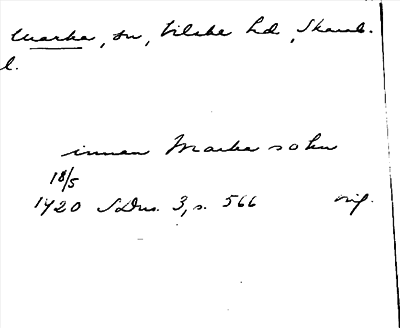 Marka, sn, Vilske hd, Skarab.
l.
innan Marka sokn
18/5
1420 SDns. 3, s. 566 orig.